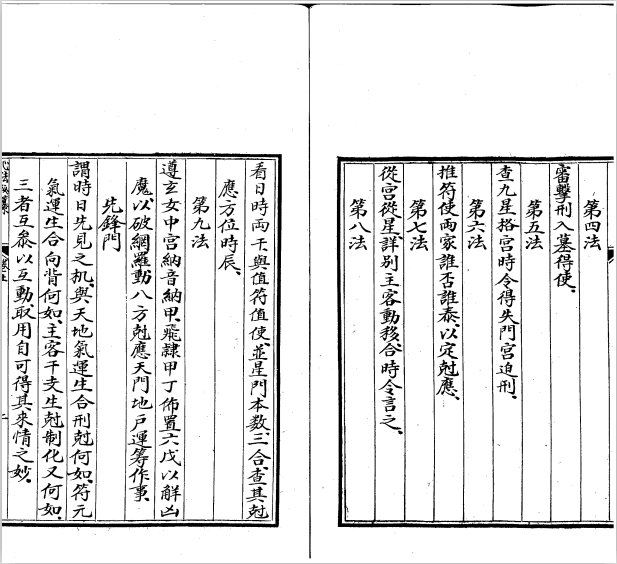 第四法
審擊刑入墓得使、
第五法
查九星撘宮時令得失門宮迫刑、
第六法
推符使両家誰否誰泰、以定尅應、
第七法
從宮從星、詳别主客動移、合時令言之、
第八法
看日時両干與值符值使、並星門本数、三合、查其尅
應方位時辰、
第九法
遵玄女中宮納音納甲、飛隷甲丁佈置六戊以解凶
魔以破網羅、動八方尅應天門地戶運筹作事、
先鋒門
謂時日先見之机、與天地氣運生合刑尅何如、符元
氣運生合向背何如、主客干支生尅制化又何如、
三者互叅以互動、取用自可得其来情之妙、
卷五
二